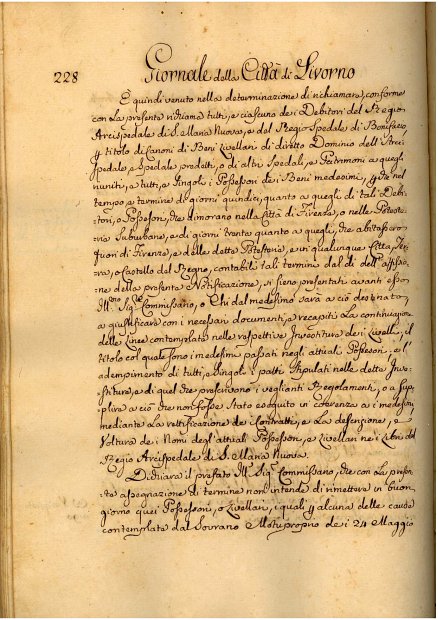 228
Giornale della Città di Livorno
E quindi venuto nella determinazione di richiamare, conforme
con La presente richiama tutti, e ciascuno dei Debitori del Regio
Arcispedale di S. Maria Nuova, e del Regio Spedale di Bonifazio,
p titolo di Canoni di Beni Livellari di diretto Dominio dell'Arci
Spedale, e Spedale predetti, o di altri Spedali, e Patrimoni a quegli
riuniti, a tutti, e singoli i Possessori dei Beni medesimi, p che nel
tempo, e termine di giorni quindici, quanto a quegli di tali Debi
tori, o Possessori, che dimorano nella Città di Firenze, o nelle Poteste
rie Suburbane, a di giorni trenta quanto a quegli, che abitassero
fuori di Firenze, e delle dette Potesterie, e in qualunque Città, Ter
ra, o Castello del Regno, contabili tali termini dal dì dell'affissio
ne della presente Notificazione, si siano presentati avanti esso
Ill.mo Sig.re Commissario, o Chi dal medesimo sarà a ciò destinato,
a giustificare con i necessari documenti, e recapiti La continuazione
delle Linee contemplate nelle respettive Investiture dei Livelli, il
titolo col quale sono i medesimi passati negli attuali Possessori, e l'
adempimento di tutti, e singoli i patti stipulati nelle dette Inve
stiture, e di quel che prescrivono i veglianti Regolamenti, o a sup
plire a ciò che non fosse stato eseguito in coerenza ai medesimi
mediante La rettificazione de Contratti, e La descrizione, e
Voltura dei Nomi degli attuali Possessori, e Livellari nei Libri del
Regio Arcispedale di S. Maria Nuova.
Dichiara il prefato Ill. Sig.re Commissario, che con La presen
te assegnazione di termine non intende di rimettere in buon
giorno quei Possessori, o Livellari, i quali p alcuna delle cause
contemplate dal Sovrano Motuproprio dei 24 Maggio